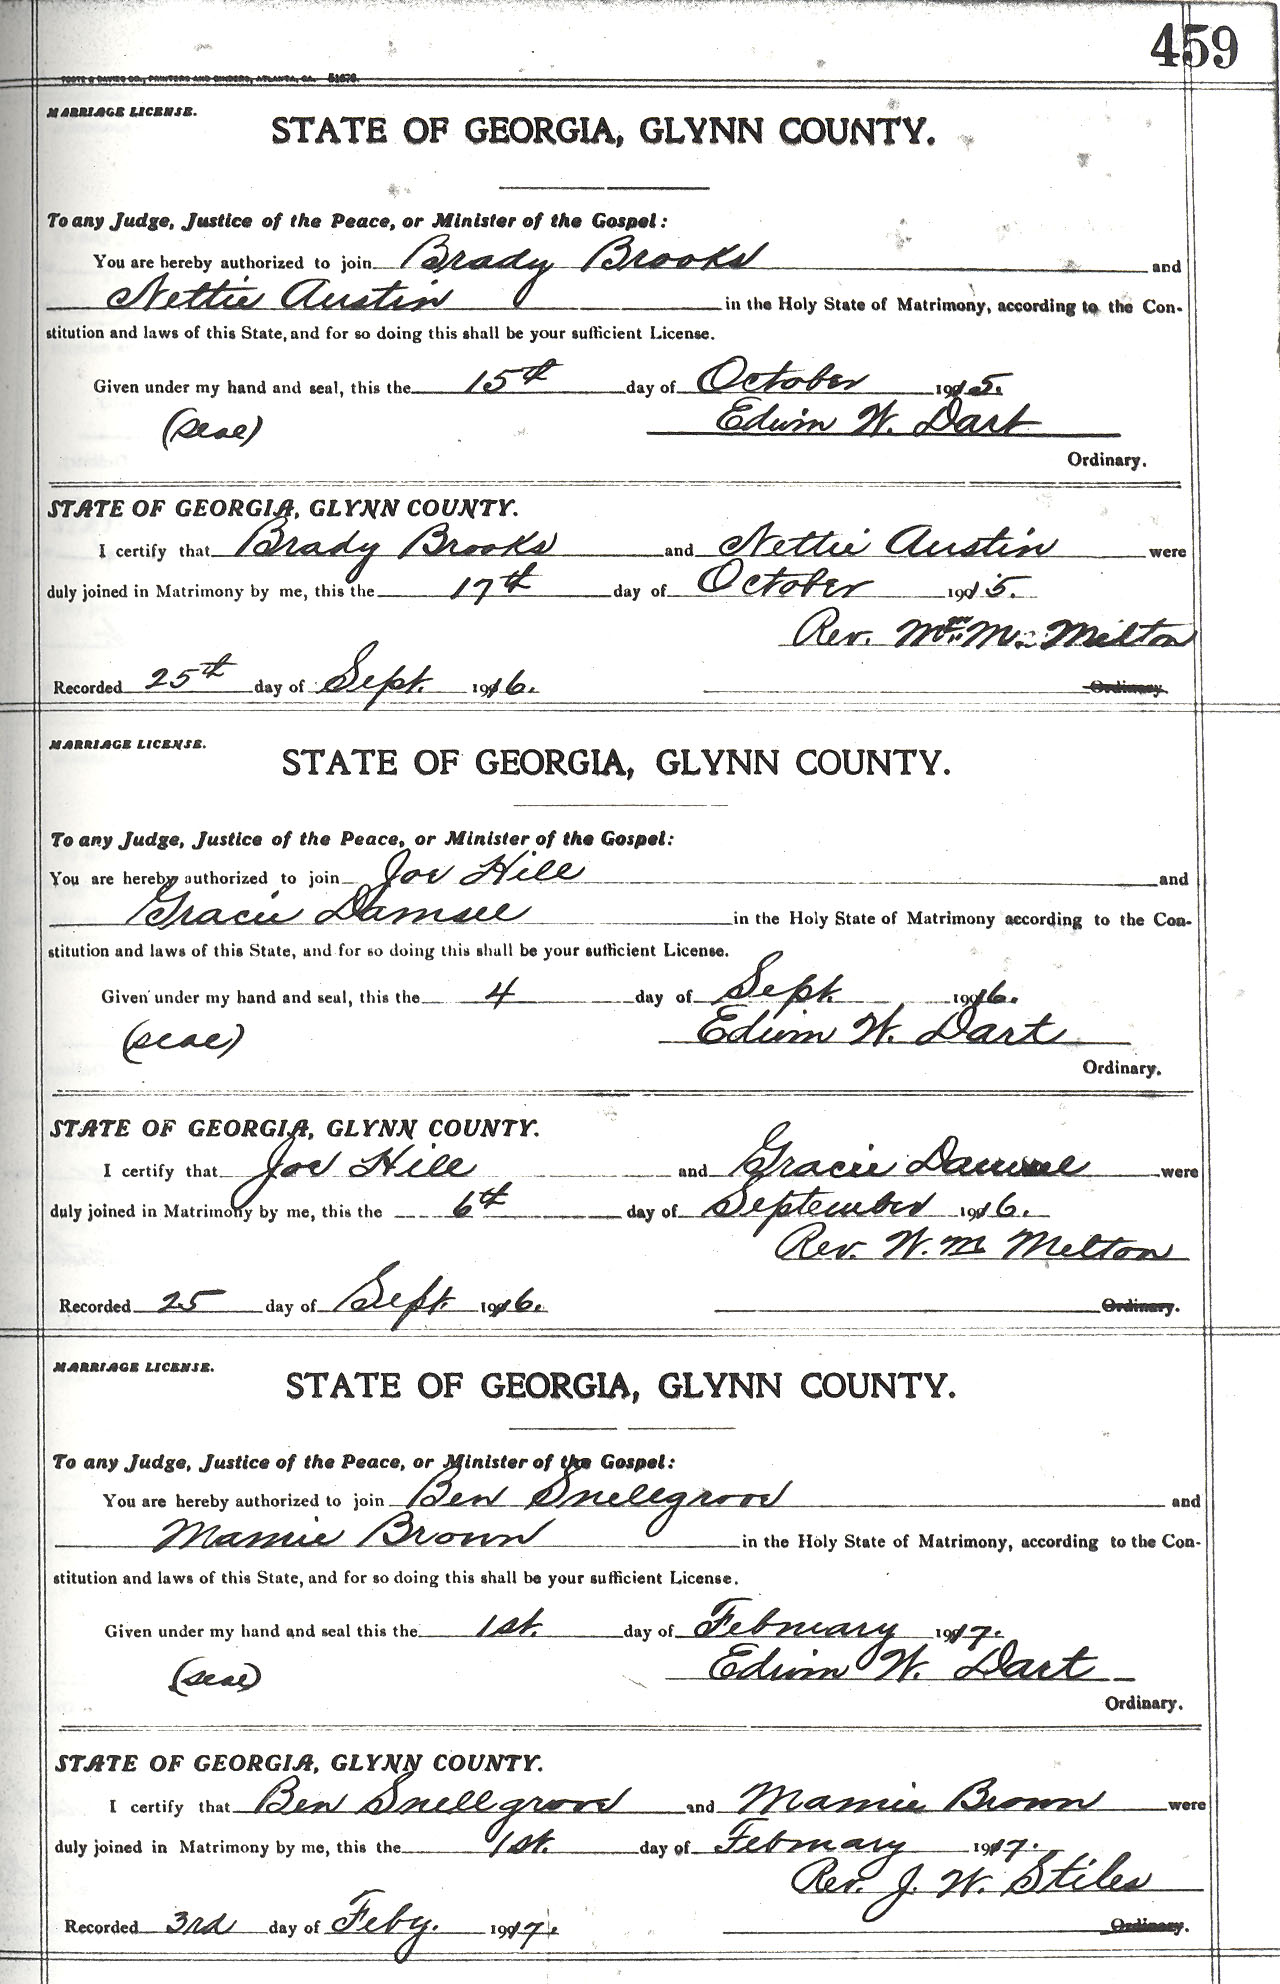 459
FOOTE & DAVIES CO., PRINTERS AND BINDERS, ATLANTA, GA. 51676.
MARRIAGE LICENSE.
STATE OF GEORGIA, GLYNN COUNTY.
To any Judge, Justice of the Peace, or Minister of the Gospel:
You are hereby authorized to join Brady Brooks and
Nettie Austin in the Holy State of Matrimony, according to the Con-
stitution and laws of this State, and for so doing this shall be your sufficient License.
Given under my hand and seal, this the 15th day of October 1915.
(seal) Edwin W. Dart
Ordinary.
STATE OF GEORGIA, GLYNN COUNTY.
I certify that Brady Brooks and Nettie Austin were
duly joined in Matrimony by me, this the 17th day of October 1915.
Rev. M. Milton
Recorded 25th day of Sept. 1916. Ordinary.
MARRIAGE LICENSE.
STATE OF GEORGIA, GLYNN COUNTY.
To any Judge, Justice of the Peace, or Minister of the Gospel:
You are hereby authorized to join Joe Hill and
Gracie Damsel in the Holy State of Matrimony according to the Con-
stitution and laws of this State, and for so doing this shall be your sufficient License.
Given under my hand and seal, this the 4 day of Sept. 1916.
(seal) Edwin W. Dart
Ordinary.
STATE OF GEORGIA, GLYNN COUNTY.
I certify that Joe Hill and Gracie were
duly joined in Matrimony by me, this the 6th day of September 1916.
Rev. W. M Melton
Recorded 25 day of Sept. 1916. Ordinary.
MARRIAGE LICENSE.
STATE OF GEORGIA, GLYNN COUNTY.
To any Judge, Justice of the Peace, or Minister of the Gospel:
You are hereby authorized to join Ben Snellgrove and
Mamie Brown in the Holy State of Matrimony, according to the Con-
stitution and laws of this State, and for so doing this shall be your sufficient License.
Given under my hand and seal this the 1st. day of February 1917.
(seal) Edwin W. Dart
Ordinary.
STATE OF GEORGIA, GLYNN COUNTY.
I certify that Ben Snellgrove and Mamie Brown were
duly joined in Matrimony by me, this the 1st. day of February 1917.
Rev. J. W. Stiles
Recorded 3rd day of Feby. 1917. Ordinary.